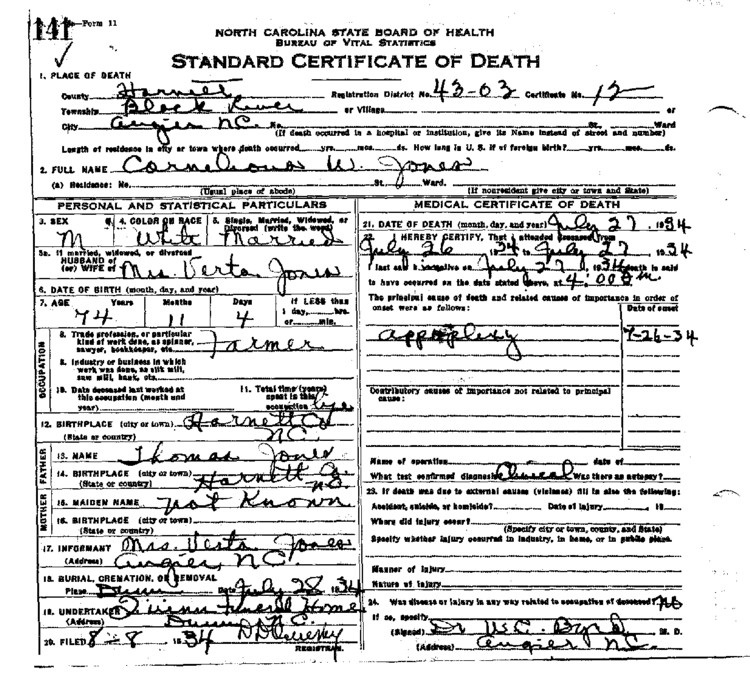 141
Form 11
NORTH CAROLINA STATE BOARD OF HEALTH
BUREAU OF VITAL STATISTICS
STANDARD CERTIFICATE OF DEATH
1. PLACE OF DEATH
County Harnett Registration District No. 43-03 Certificate No. 12
Township Black River or Village or
City Angier N.C. No. St. Ward
(If death occurred in a hospital or institution, give its Name instead of street and number)
Length of residence in city or town where death occurred yrs. mos. ds. How long in U. S. if of foreign birth? yrs. mos. ds.
2. FULL NAME Cornelious W. Jones
(a) Residence: No. St. Ward.
(Usual place of abode) (If nonresident give city or town and State)
PERSONAL AND STATISTICAL PARTICULARS
3. SEX 4. COLOR OR RACE 5. Single, Married, Widowed, or Divorced (write the word)
M White Married
5a. If married, widowed, or divorced
HUSBAND of
(or) WIFE of Mrs Verta Jones
6. DATE OF BIRTH (month, day, and year)
7. AGE Years Months Days If LESS than 1 day, hrs. or min.
74 11 4
OCCUPATION
8. Trade profession, or particular kind of work done, as spinner, sawyer, bookkeeper, etc. Farmer
9. Industry or business in which work was done, as silk mill, saw mill, bank, etc.
10. Date deceased last worked at this occupation (month and year)
11. Total time (years) spent in this occupation
12. BIRTHPLACE (city or town) Harnett Co
(State or country) N.C.
FATHER
13. NAME Thomas Jones
14. BIRTHPLACE (city or town) Harnett Co.
(State or country) N.C.
MOTHER
15. MAIDEN NAME Not Known
16. BIRTHPLACE (city or town)
(State or country)
17. INFORMANT Mrs. Verta Jones
(Address) Angier, N.C.
18. BURIAL, CREMATION, OR REMOVAL
Place Dunn Date July 28 1934
19. UNDERTAKER Funeral Home
(Address) Dunn, N.C.
20. FILED 8-8 1934
REGISTRAR.
MEDICAL CERTIFICATE OF DEATH
21. DATE OF DEATH (month, day, and year) July 27 1934
22. I HEREBY CERTIFY, That I attended deceased from
July 26 1934 to July 27 1934
I last saw h alive on July 27 1934 death is said
to have occurred on the date stated above, at 4:00 m
The principal cause of death and related causes of importance in order of onset were as follows: Date of onset
Appoplexy 7-26-34
Contributory causes of importance not related to principal cause:
Name of operation date of
What test confirmed diagnosis Clinical Was there an autopsy?
23. If death was due to external causes (violence) fill in also the following:
Accident, suicide, or homicide? Date of injury 19
Where did injury occur?
(Specify city or town, county, and State)
Specify whether injury occurred in industry, in home, or in public place.
Manner of injury
Nature of injury
24. Was disease or injury in any way related to occupation of deceased? No
If so, specify
(Signed) Dr W.C. Byrd M. D.
(Address) Angier N.C.